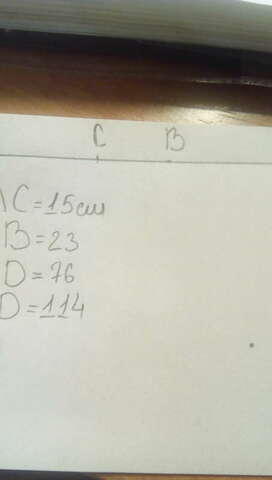 C B
C=15см
B=23
D=76
D=114